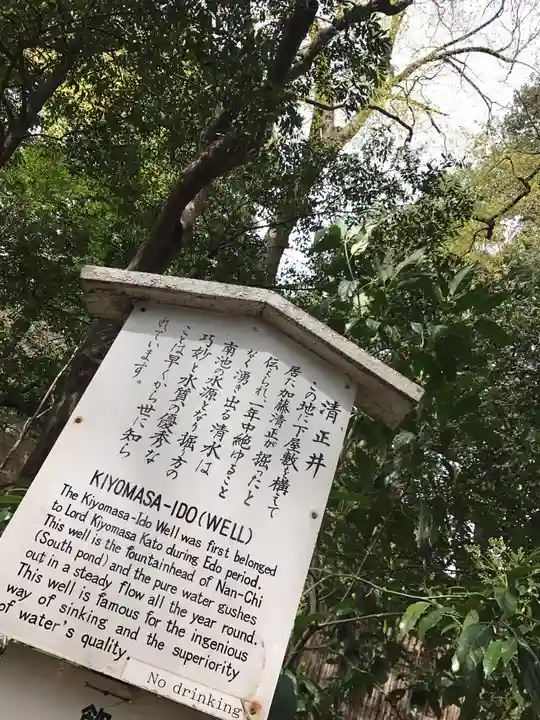 清正井
この地に下屋敷を構えて
居た加藤清正が掘ったと
伝えられ、一年中絶ゆること
なく湧き出る清水は
南池の水源となり掘方の
巧妙と水質の優秀な
ことは早くから世に知ら
れています。
KIYOMASA-IDO (WELL)
The Kiyomasa-Ido Well was first belonged
to Lord Kiyomasa Kato during Edo period.
This well is the fountainhead of Nan-Chi
(South pond) and the pure water gushes
out in a steady flow all the year round.
This well is famous for the ingenious
way of sinking and the superiority
of water's quality.
No drinking